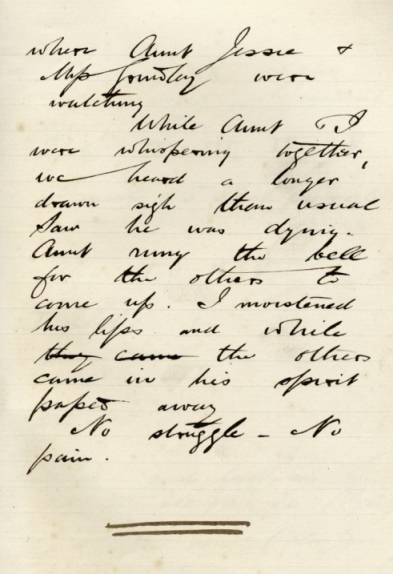 where Aunt Jessie &
Miss Gourlay were
watching
While Aunt & I
were whispering together,
we heard a longer
drawn sigh than usual
Saw he was dying.
Aunt rung the bell
for the others to
come up. I moistened
his lips and while
they came the others
came in his spirit
passed away
No struggle - No
pain.